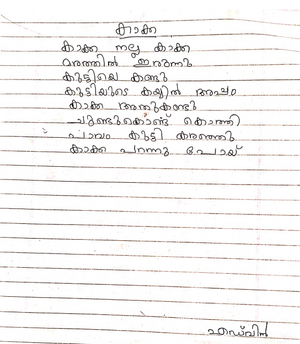 കാക്ക
കാക്ക നല്ല കാക്ക
മരത്തിൽ ഇരുന്നു
കുട്ടിയെ കണ്ടു
കുട്ടിയുടെ കയ്യിൽ അപ്പം
കാക്ക അതുകണ്ടു
ചുണ്ടുകൊണ്ട് കൊത്തി
പാവം കുട്ടി കരഞ്ഞു
കാക്ക പറന്നു പോയ്
എഡ്വിൻ